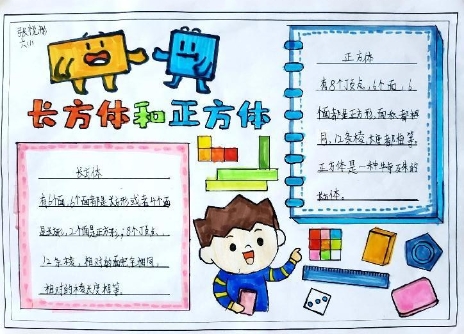 长方体和正方体
正方体
有8个顶点,6个面,6
个面都是正方形,面积都相
同,12条棱,长度都相等。
正方体是一种特殊的
长方体。
长方体
有6个面,6个面都是长方形或者4个面
是长方形,2个面是正方形,8个顶点,
12条棱,相对的面完全相同,
相对的棱长度相等。